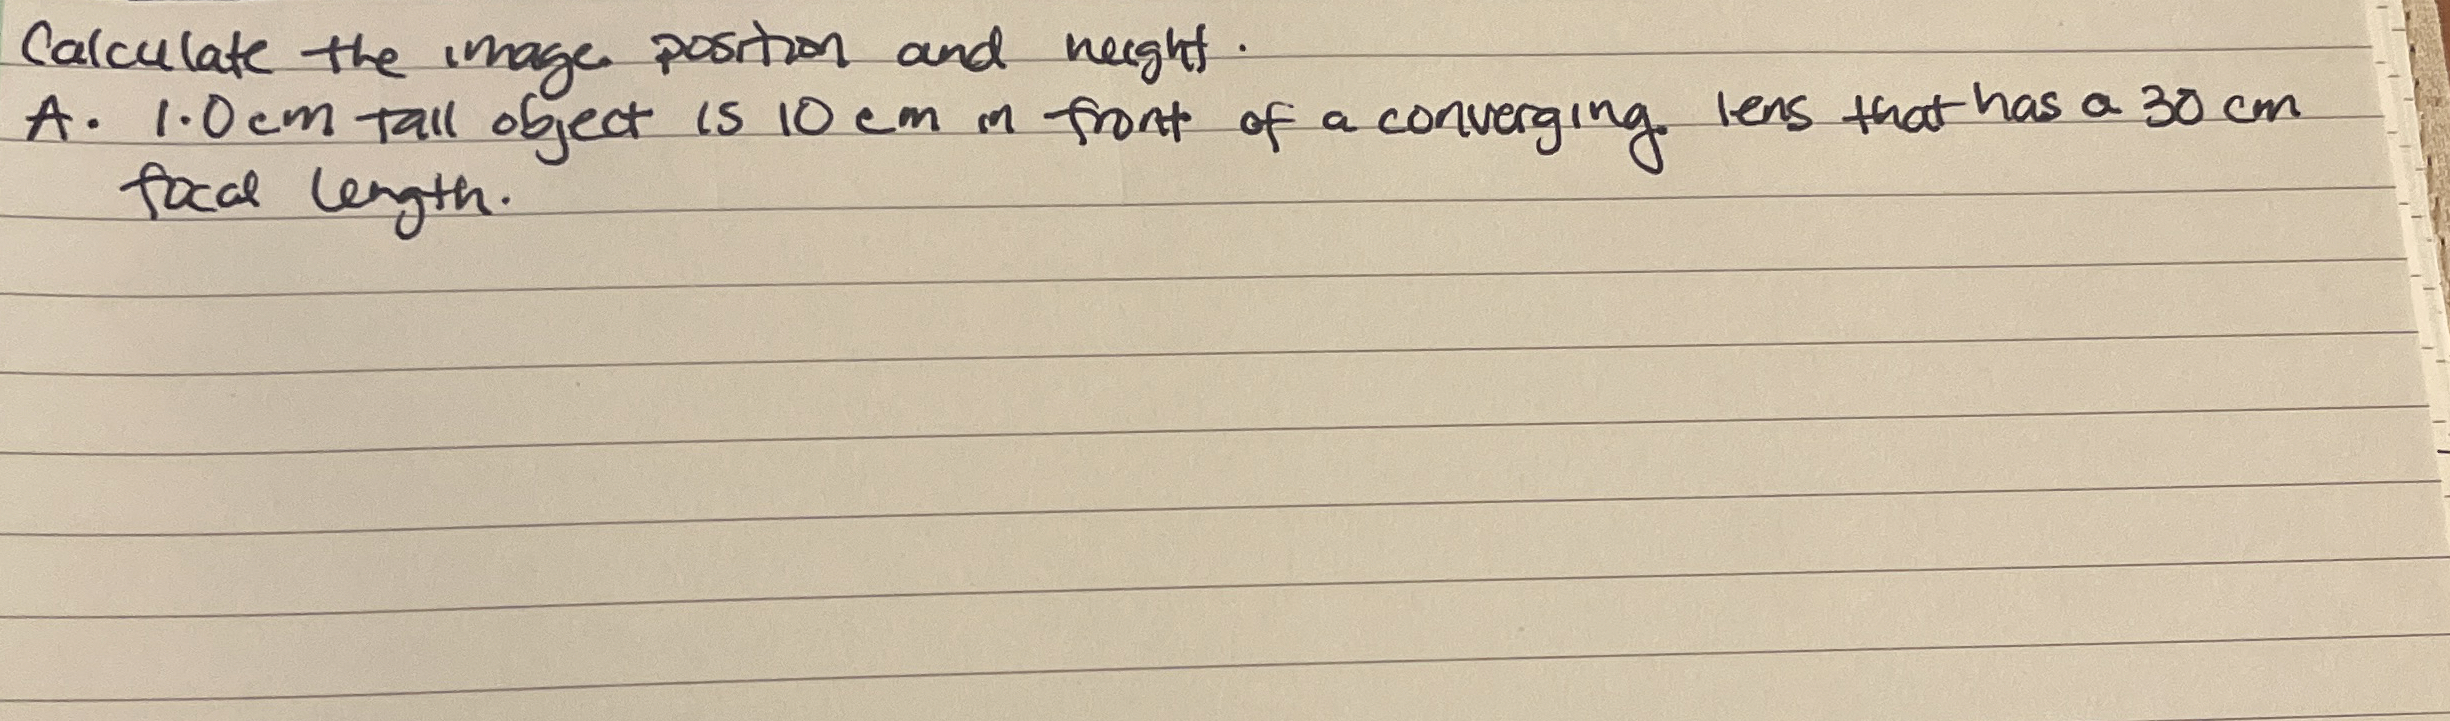 Calculate the image position and height.
A. 1.0 cm tall object is 10 cm in front of a converging lens that has a 30 cm
focal length.